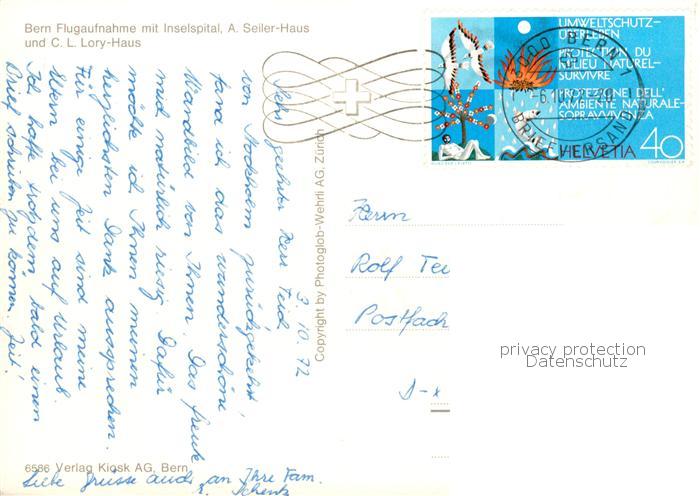 Bern Flugaufnahme mit Inselspital, A. Seiler-Haus
und C. L. Lory-Haus
3.10.72
Sehr geehrter Herr Teid
von Stockholm zurückgekehrt,
fand ich das wunderschöne
Wandbild von Ihnen. Das freute
mich natürlich riesig. Dafür
möchte ich Ihnen meinen
herzlichsten Dank aussprechen.
Für einige Zeit sind meine
Eltern bei uns auf Urlaub.
Ich hoffe trotzdem, bald einen
Brief schreiben zu können. Zeit!
Liebe Grüsse auch an Ihre Fam.
Copyright by Photoglob-Wehrli AG, Zürich
6586 Verlag Kiosk AG, Bern
UMWELTSCHUTZ-
ÜBERLEBEN
PROTECTION DU
MILIEU NATUREL-
SURVIVRE
PROTEZIONE DELL'
AMBIENTE NATURALE-
SOPRAVVIVENZA
HELVETIA 40
3000 BERN 1
BRIEFVERSAND
Herrn
Rolf Tei
Postfach
D-
privacy protection
Datenschutz